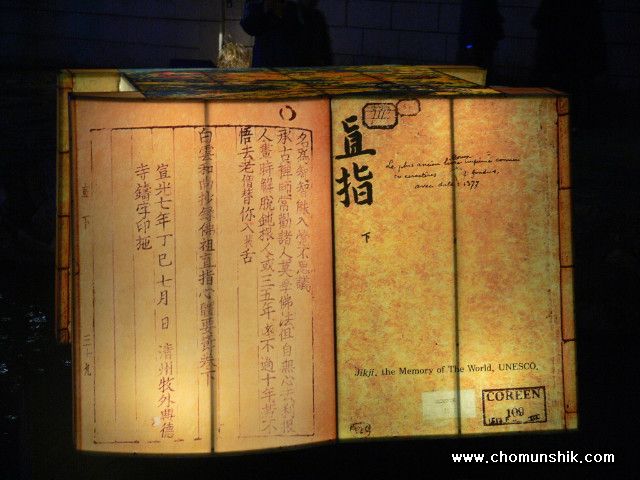 直指
下
Le plus ancien livre imprimé connu
en caractères fondus,
avec date : 1377
Jikji, the Memory of The World, UNESCO.
COREEN
109
禪師常勸諸人莫學佛法但自無心去利根
人晝時解脫鈍根人或三五年遠不過十年若不
悟去老僧替你入拔舌
白雲和尚抄錄佛祖直指心體要節卷下
宣光七年丁巳七月 日 淸州牧外興德
寺鑄字印施
直 下
三十九
www.chomunshik.com